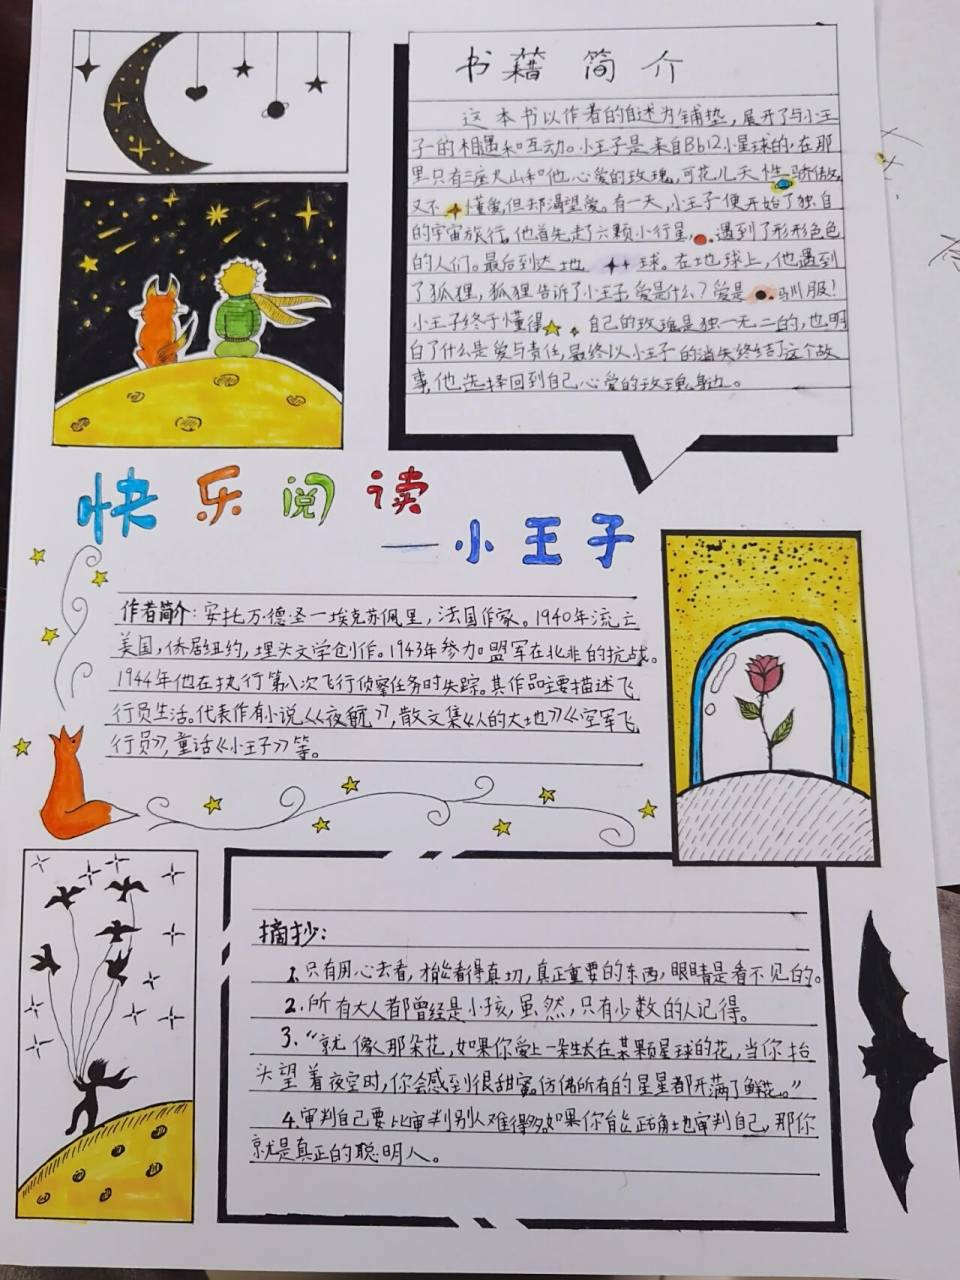 书籍简介
这本书以作者的自述为铺垫，展开了与小王
子的相遇和互动。小王子是来自Bb12小星球的，在那
里只有三座火山和他心爱的玫瑰，可花儿天性骄傲
又不懂爱，但却渴望爱。有一天，小王子便开始了独自
的宇宙旅行，他首先走了六颗小行星，遇到了形形色色
的人们。最后到达地球。在地球上，他遇到
了狐狸，狐狸告诉了小王子，爱是什么？爱是驯服！
小王子终于懂得自己的玫瑰是独一无二的，也明
白了什么是爱与责任，最终以小王子的消失终结了这个故
事，他选择回到自己心爱的玫瑰身边。
快乐阅读
—小王子
作者简介：安托万·德圣—埃克苏佩里，法国作家。1940年流亡
美国，侨居纽约，埋头文学创作。1943年参加盟军在北非的抗战。
1944年他在执行第八次飞行侦察任务时失踪。其作品主要描述飞
行员生活。代表作有小说《夜航》，散文集《人的大地》《空军飞
行员》，童话《小王子》等。
摘抄：
1.只有用心去看，才能看得真切，真正重要的东西，眼睛是看不见的。
2.所有大人都曾经是小孩，虽然，只有少数的人记得。
3.“就像那朵花，如果你爱上一朵生长在某颗星球的花，当你抬
头望着夜空时，你会感到很甜蜜。仿佛所有的星星都开满了鲜花。”
4.审判自己要比审判别人难得多。如果你能正确地审判自己，那你
就是真正的聪明人。